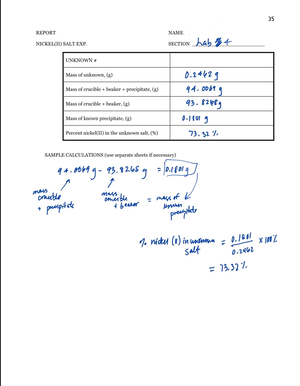 35
REPORT NAME
NICKEL(II) SALT EXP. SECTION Lab # 4
UNKNOWN #
Mass of unknown, (g) 0.2462 g
Mass of crucible + beaker + precipitate, (g) 94.0069 g
Mass of crucible + beaker, (g) 93.8268 g
Mass of known precipitate, (g) 0.1801 g
Percent nickel(II) in the unknown salt, (%) 73.32 %
SAMPLE CALCULATIONS (use separate sheets if necessary)
94.0069 g - 93.8265 g = 0.1801 g
mass crucible + precipitate
mass crucible + beaker
= mass of known precipitate
% nickel (II) in unknown salt = 0.1801 / 0.2462 × 100%
= 73.32 %